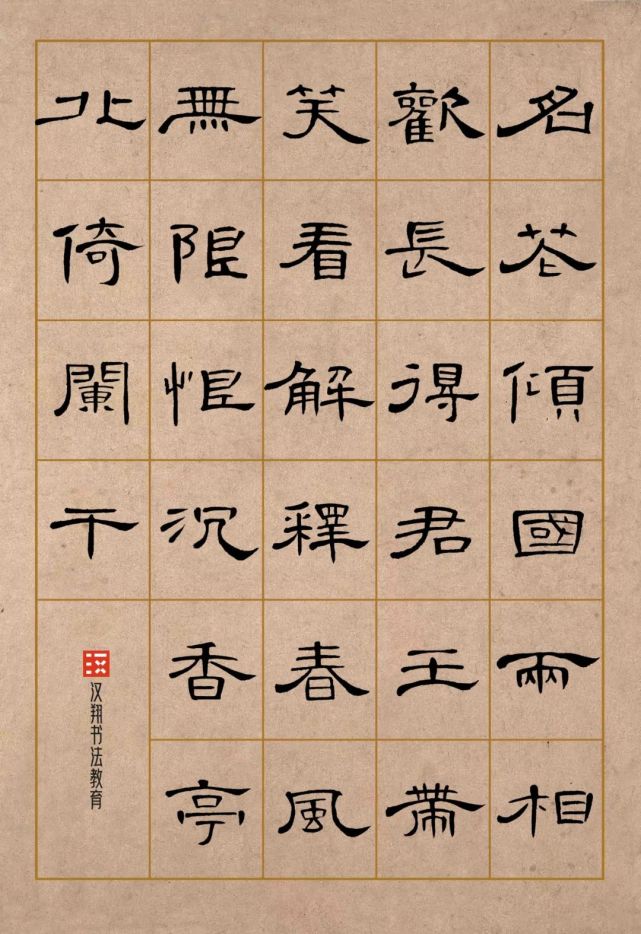 名花傾國兩相
歡長得君王帶
笑看解釋春風
無限恨沉香亭
北倚闌干
汉翔书法教育